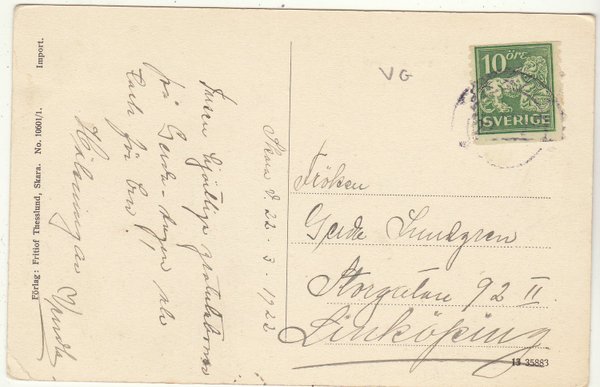 Förlag: Fritiof Thesslund, Skara. No. 10601/1. Import.
hjärtliga gratulationer
på Gerda-dagen
Tack för brev!
Hälsningar
Skara d. 22-3-1922
VG
10 ÖRE
SVERIGE
Fröken
Gerda Lundgren
Storgatan 92 II
Linköping
13 35883